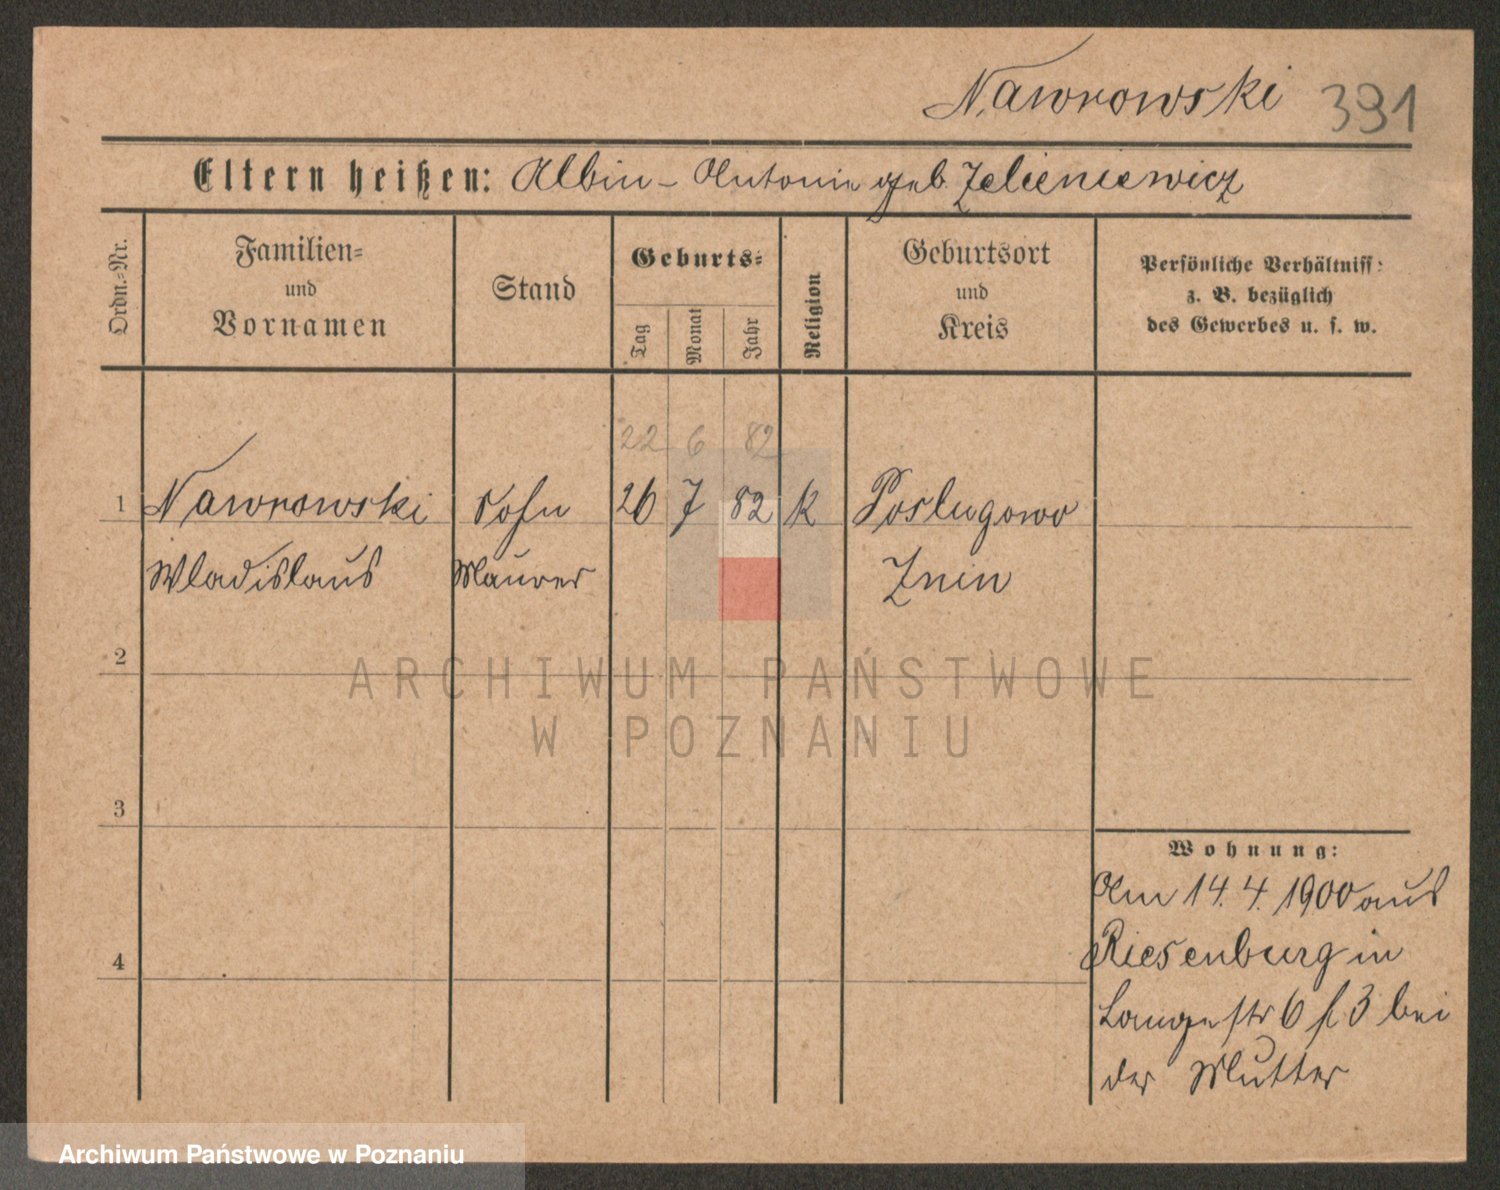 Nawrowski 391
Eltern heißen: Albin - Antonie geb. Zelieniewicz
Ordn.-Nr.
Familien-
und
Vornamen
Stand
Geburts-
Tag
Monat
Jahr
Religion
Geburtsort
und
Kreis
Persönliche Verhältniss:
z. B. bezüglich
des Gewerbes u. s. w.
22 6 82
1 Nawrowski Sohn 26 7 82 k Poslugowo
Wladislaus Maurer Znin
2
ARCHIWUM PAŃSTWOWE
W POZNANIU
3
Wohnung:
Am 14.4.1900 aus
4
Riesenburg in
Langestr 6 3 bei
der Mutter
Archiwum Państwowe w Poznaniu